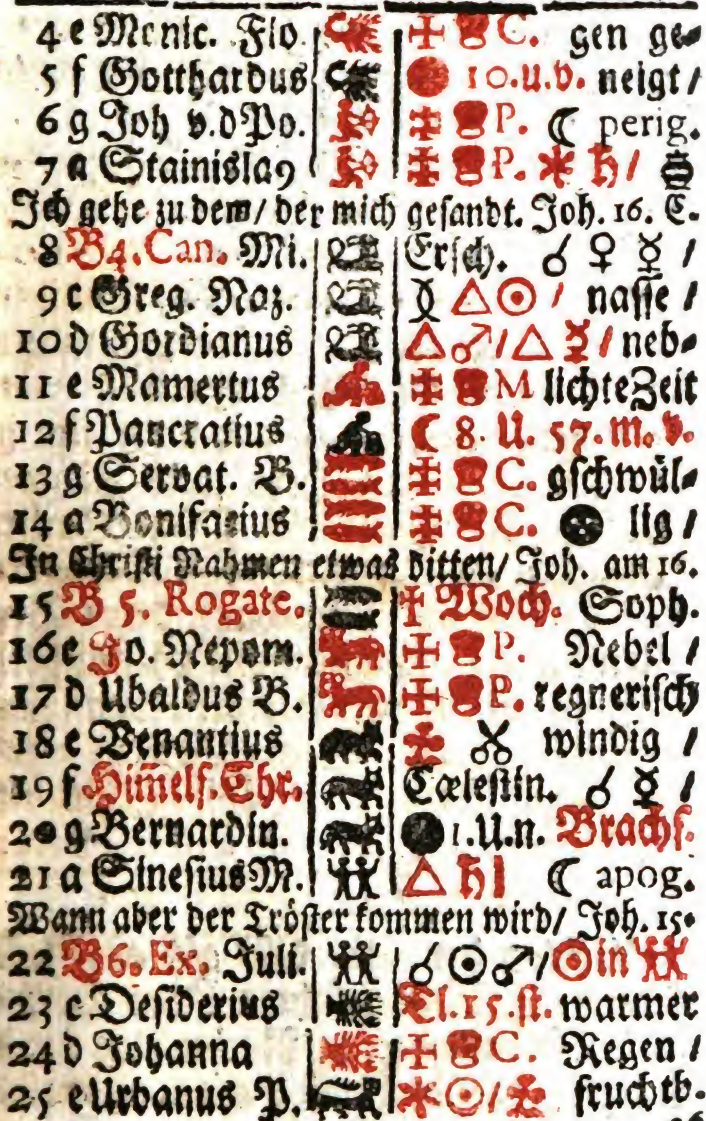 4 e Monic. Flo. C. gen ge⸗
5 f Gotthardus 10.u.v. neigt /
6 g Joh v.d Po. P. ☾ perig.
7 a Stainislaꝰ P. ✱ ♄ /
Ich gehe zu dem/ der mich gesandt. Joh. 16. C.
8 B 4. Can. Mi. Ersch. ☌ ♀ ☿ /
9 c Greg. Naz. △ ☉ / nasse /
10 d Gordianus △ ♂ / △ ☿ / neb⸗
11 e Mamertus M lichte Zeit
12 f Pancratius ☾ 8. U. 57. m. v.
13 g Servat. B. C. gschwül⸗
14 a Bonifacius C. lig /
In Christi Nahmen etwas bitten/ Joh. am 16.
15 B 5. Rogate. Woch. Soph.
16 c Jo. Nepom. P. Nebel /
17 d Ubaldus B. P. regnerisch
18 e Venantius windig /
19 f Himelf. Chr. Cœlestin. ☌ ☿ /
20 g Bernardin. 1.U.n. Brachs.
21 a Sinesius M. △ ♄ ☾ apog.
Wann aber der Tröster kommen wird/ Joh. 15.
22 B 6. Ex. Juli. ☌ ☉ ♂ / ☉ in ♊
23 c Desiderius Tl.15.st. warmer
24 d Johanna C. Regen /
25 e Urbanus P. ✱ ☉ / fruchtb⸗